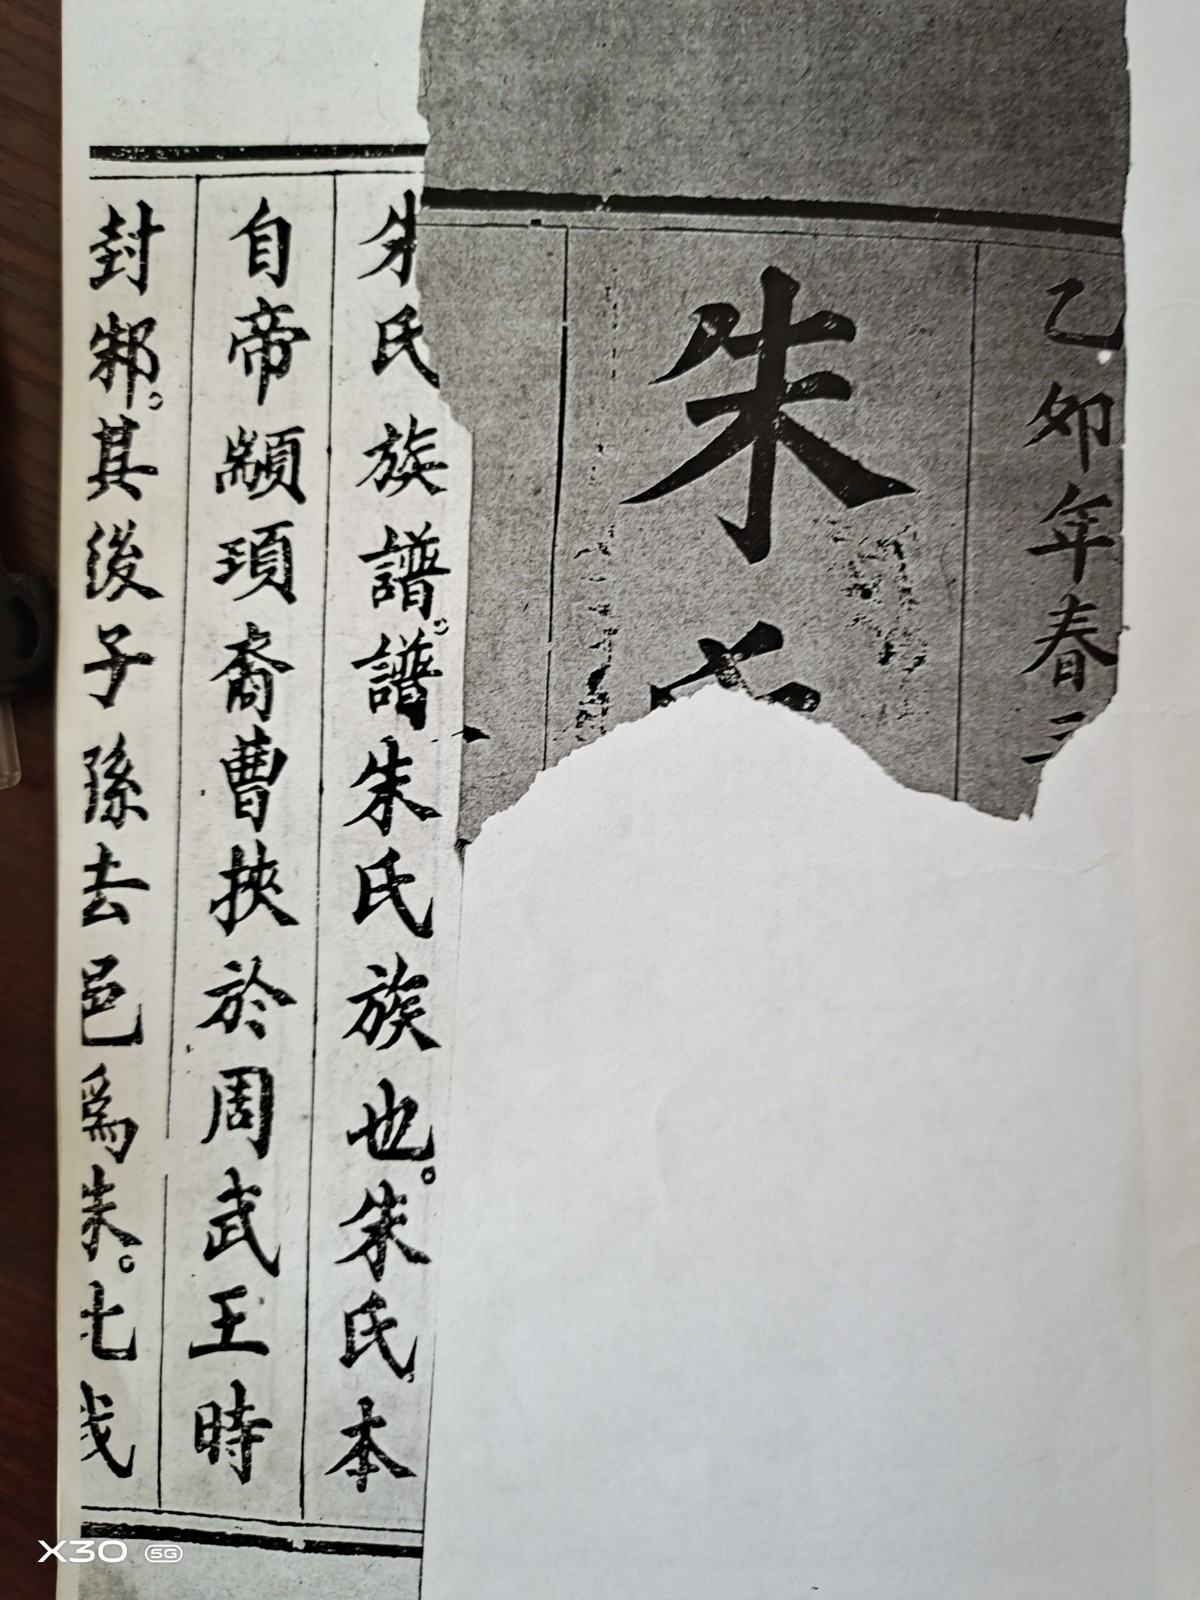 乙卯年春三
朱氏
朱氏族譜。譜朱氏族也。朱氏本
自帝顓頊裔曹挾於周武王時
封邾。其後子孫去邑爲朱。七
X30 5G